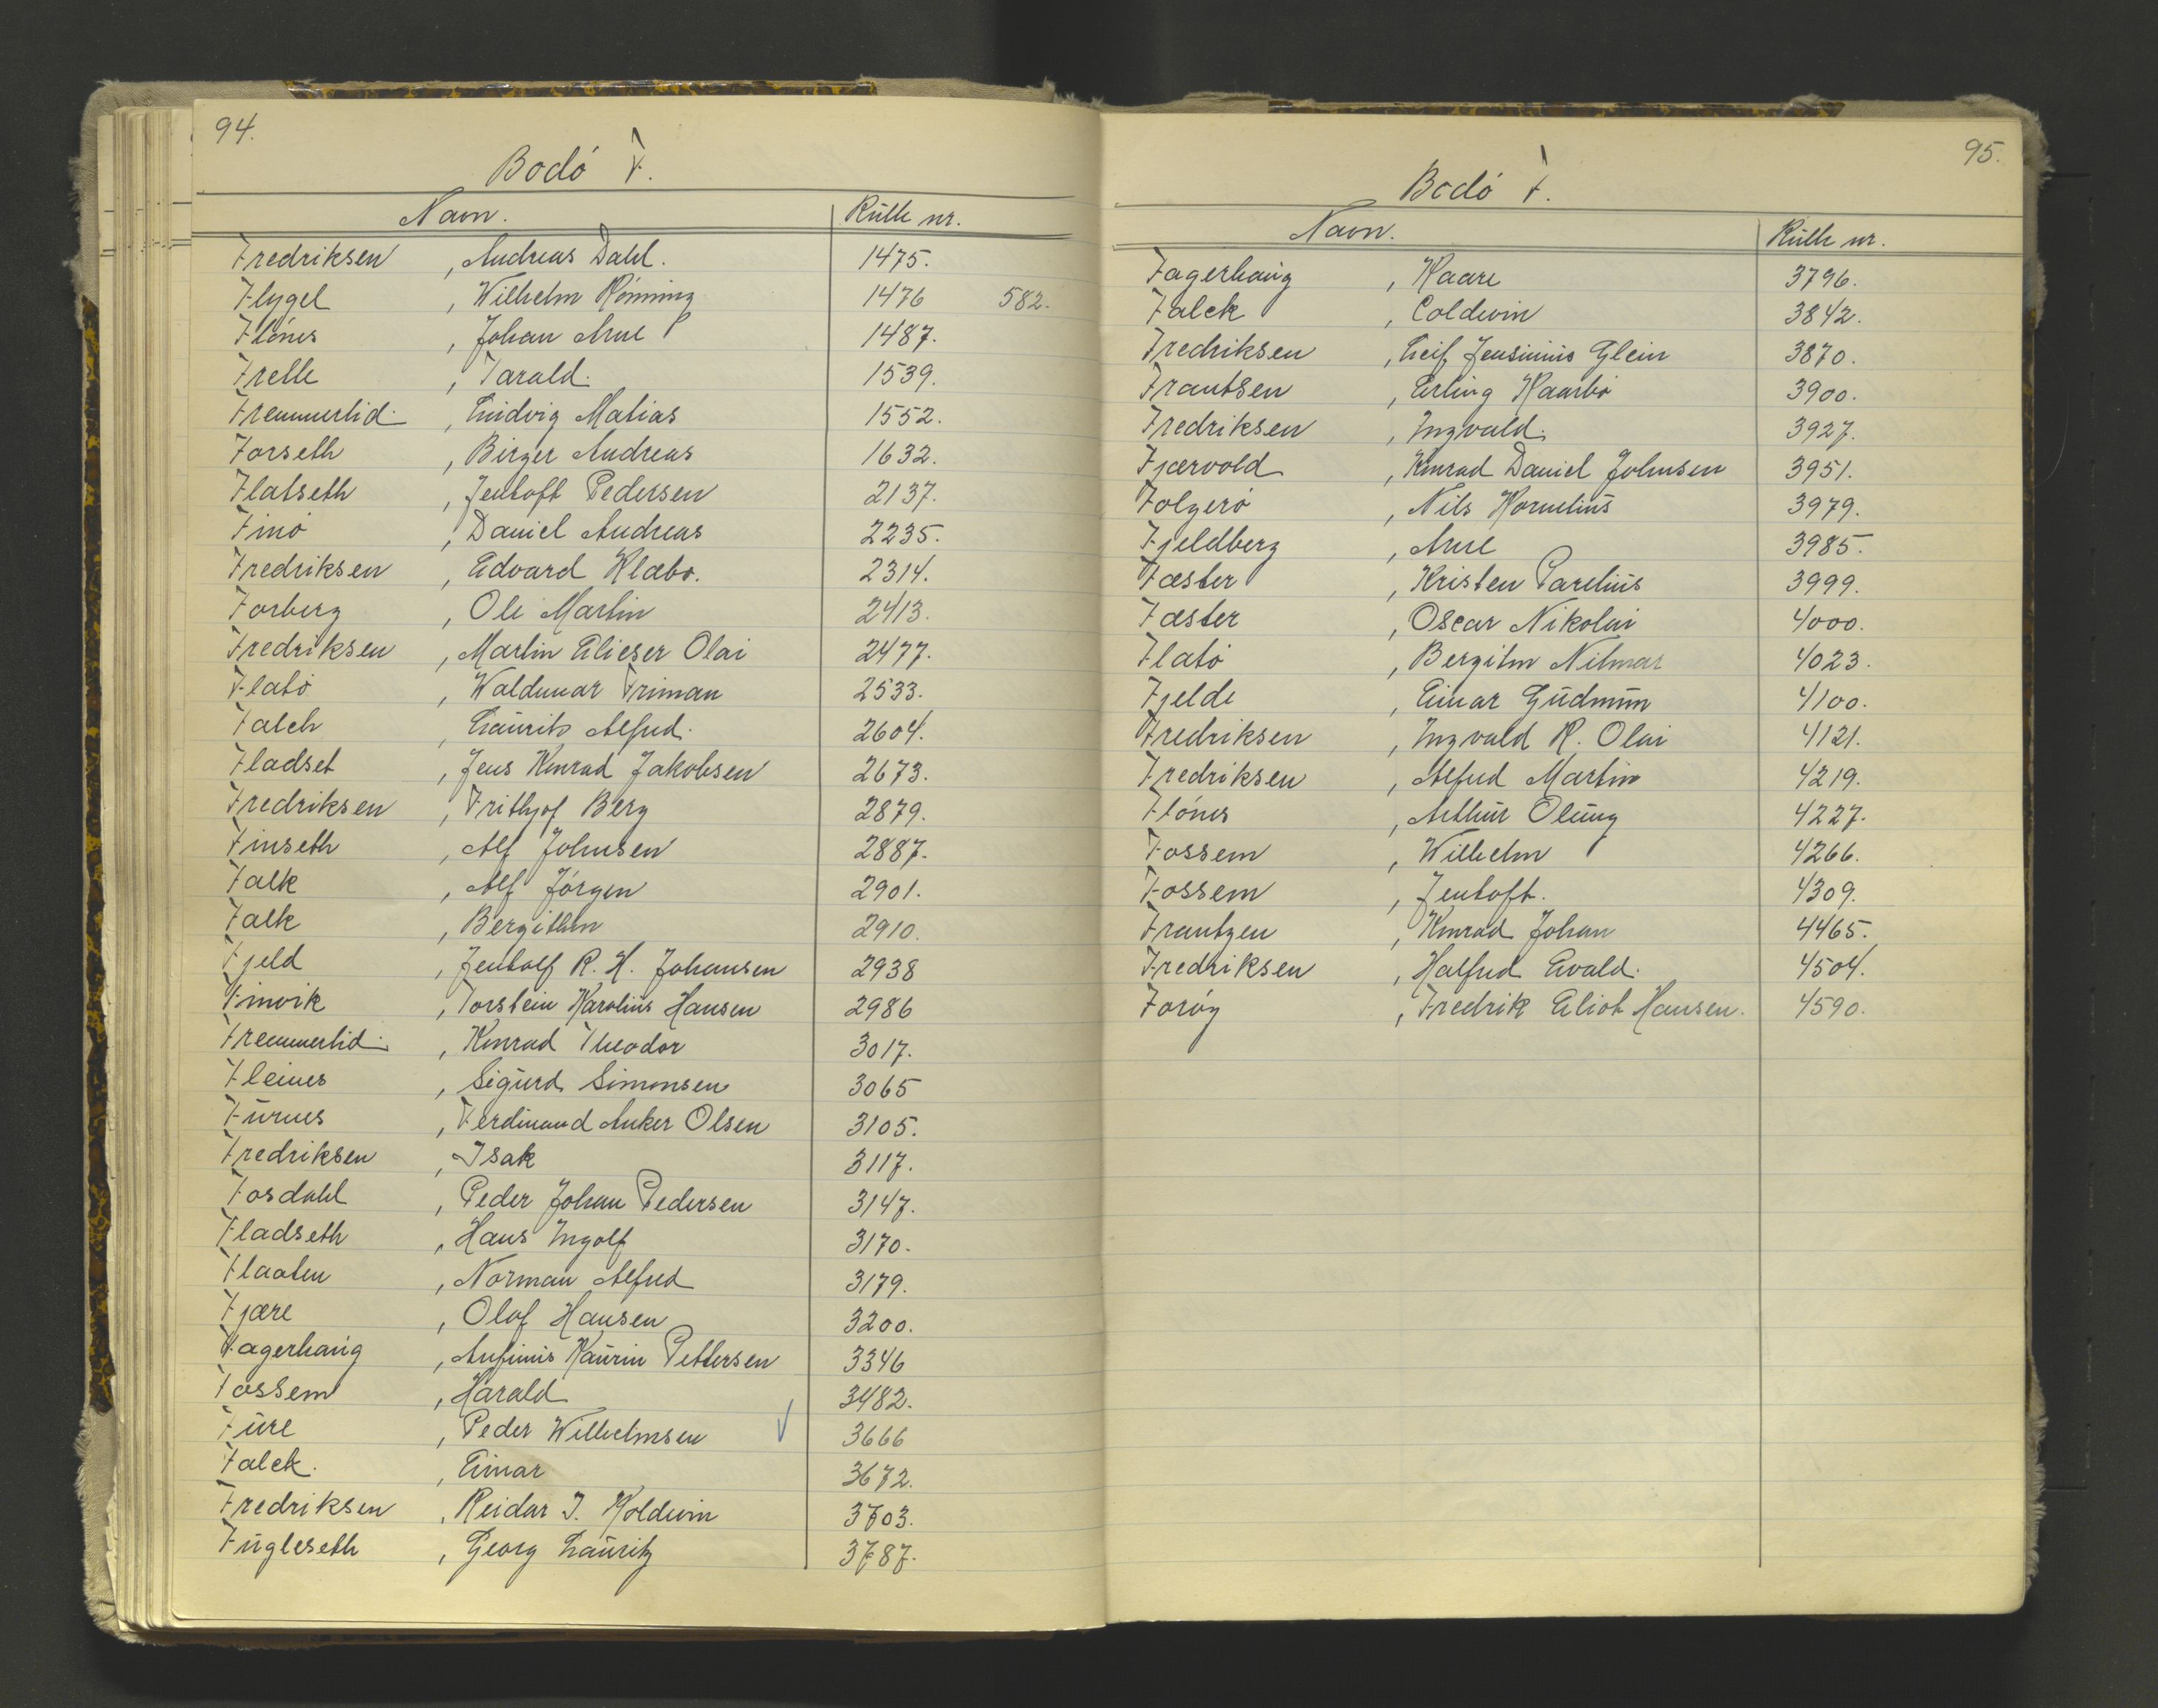 94.
Bodó F.
Navn. Rulle nr.
Fredriksen , Andreas Dahl. 1475.
Flygel , Wilhelm Rönning 1476 582.
Flónes , Johan Arne 1487.
Frelle , Tarald. 1539.
Fremmerlid. , Ludvig Matias 1552.
Forseth , Birger Andreas 1632.
Flatseth , Jentoft Pedersen 2137.
Finö , Daniel Andreas 2235.
Fredriksen , Edvard Klæbo. 2314.
Forberg , Ole Martin 2413.
Fredriksen , Martin Elieser Olai 2477.
Flatö , Waldemar Friman 2533.
Falch , Laurits Alfred. 2604.
Fladset , Jens Konrad Jakobsen 2673.
Fredriksen , Frithjof Berg 2879.
Finseth , Alf Johnsen 2887.
Falk , Alf Jórgen 2901.
Falk , Bergithon 2910.
Fjeld , Jentolf R. H. Johansen 2938
Finvik , Torstein Karolius Hansen 2986
Fremmerlid. , Konrad Theodor 3017.
Fleines , Sigurd Simonsen 3065
Furnes , Ferdinand Anker Olsen 3105.
Fredriksen , Isak 3117.
Fosdahl , Peder Johan Pedersen 3147.
Fladseth , Hans Ingolf 3170.
Flaaten , Norman Alfred 3179.
Fjære , Olaf Hansen 3200.
Fagerhaug , Anfinnis Kaurin Pettersen 3346
Fossem , Harald 3482.
Fure , Peder Wilhelmsen √ 3666
Falck. , Einar 3672.
Fredriksen , Reidar J. Koldevin 3703.
Fugleseth , Georg Lauritz 3787.
95.
Bodó F.
Navn. Rulle nr.
Fagerhaug , Kaare 3796.
Falck , Coldevin 3842.
Fredriksen , Leif Jensinius Glein 3870.
Frantsen , Erling Kaarbö 3900.
Fredriksen , Ingvald. 3927.
Fjærvold , Konrad Daniel Johnsen 3951.
Folgerö , Nils Kornelius 3979.
Fjeldberg , Arne 3985.
Fæster , Kristen Parelius 3999.
Fæster , Oscar Nikolai 4000.
Flatö , Bergiton Hilmar 4023.
Fjelde , Einar Gudmun 4100.
Fredriksen , Ingvald R. Olai 4121.
Fredriksen , Alfred Martin 4219.
Flónes , Arthur Olung 4227.
Fossem , Wilhelm 4266.
Fossem , Jentoft. 4309.
Frantzen , Konrad Johan 4465.
Fredriksen , Halfred Evald. 4504.
Foröy , Fredrik Eliot Hansen. 4590.